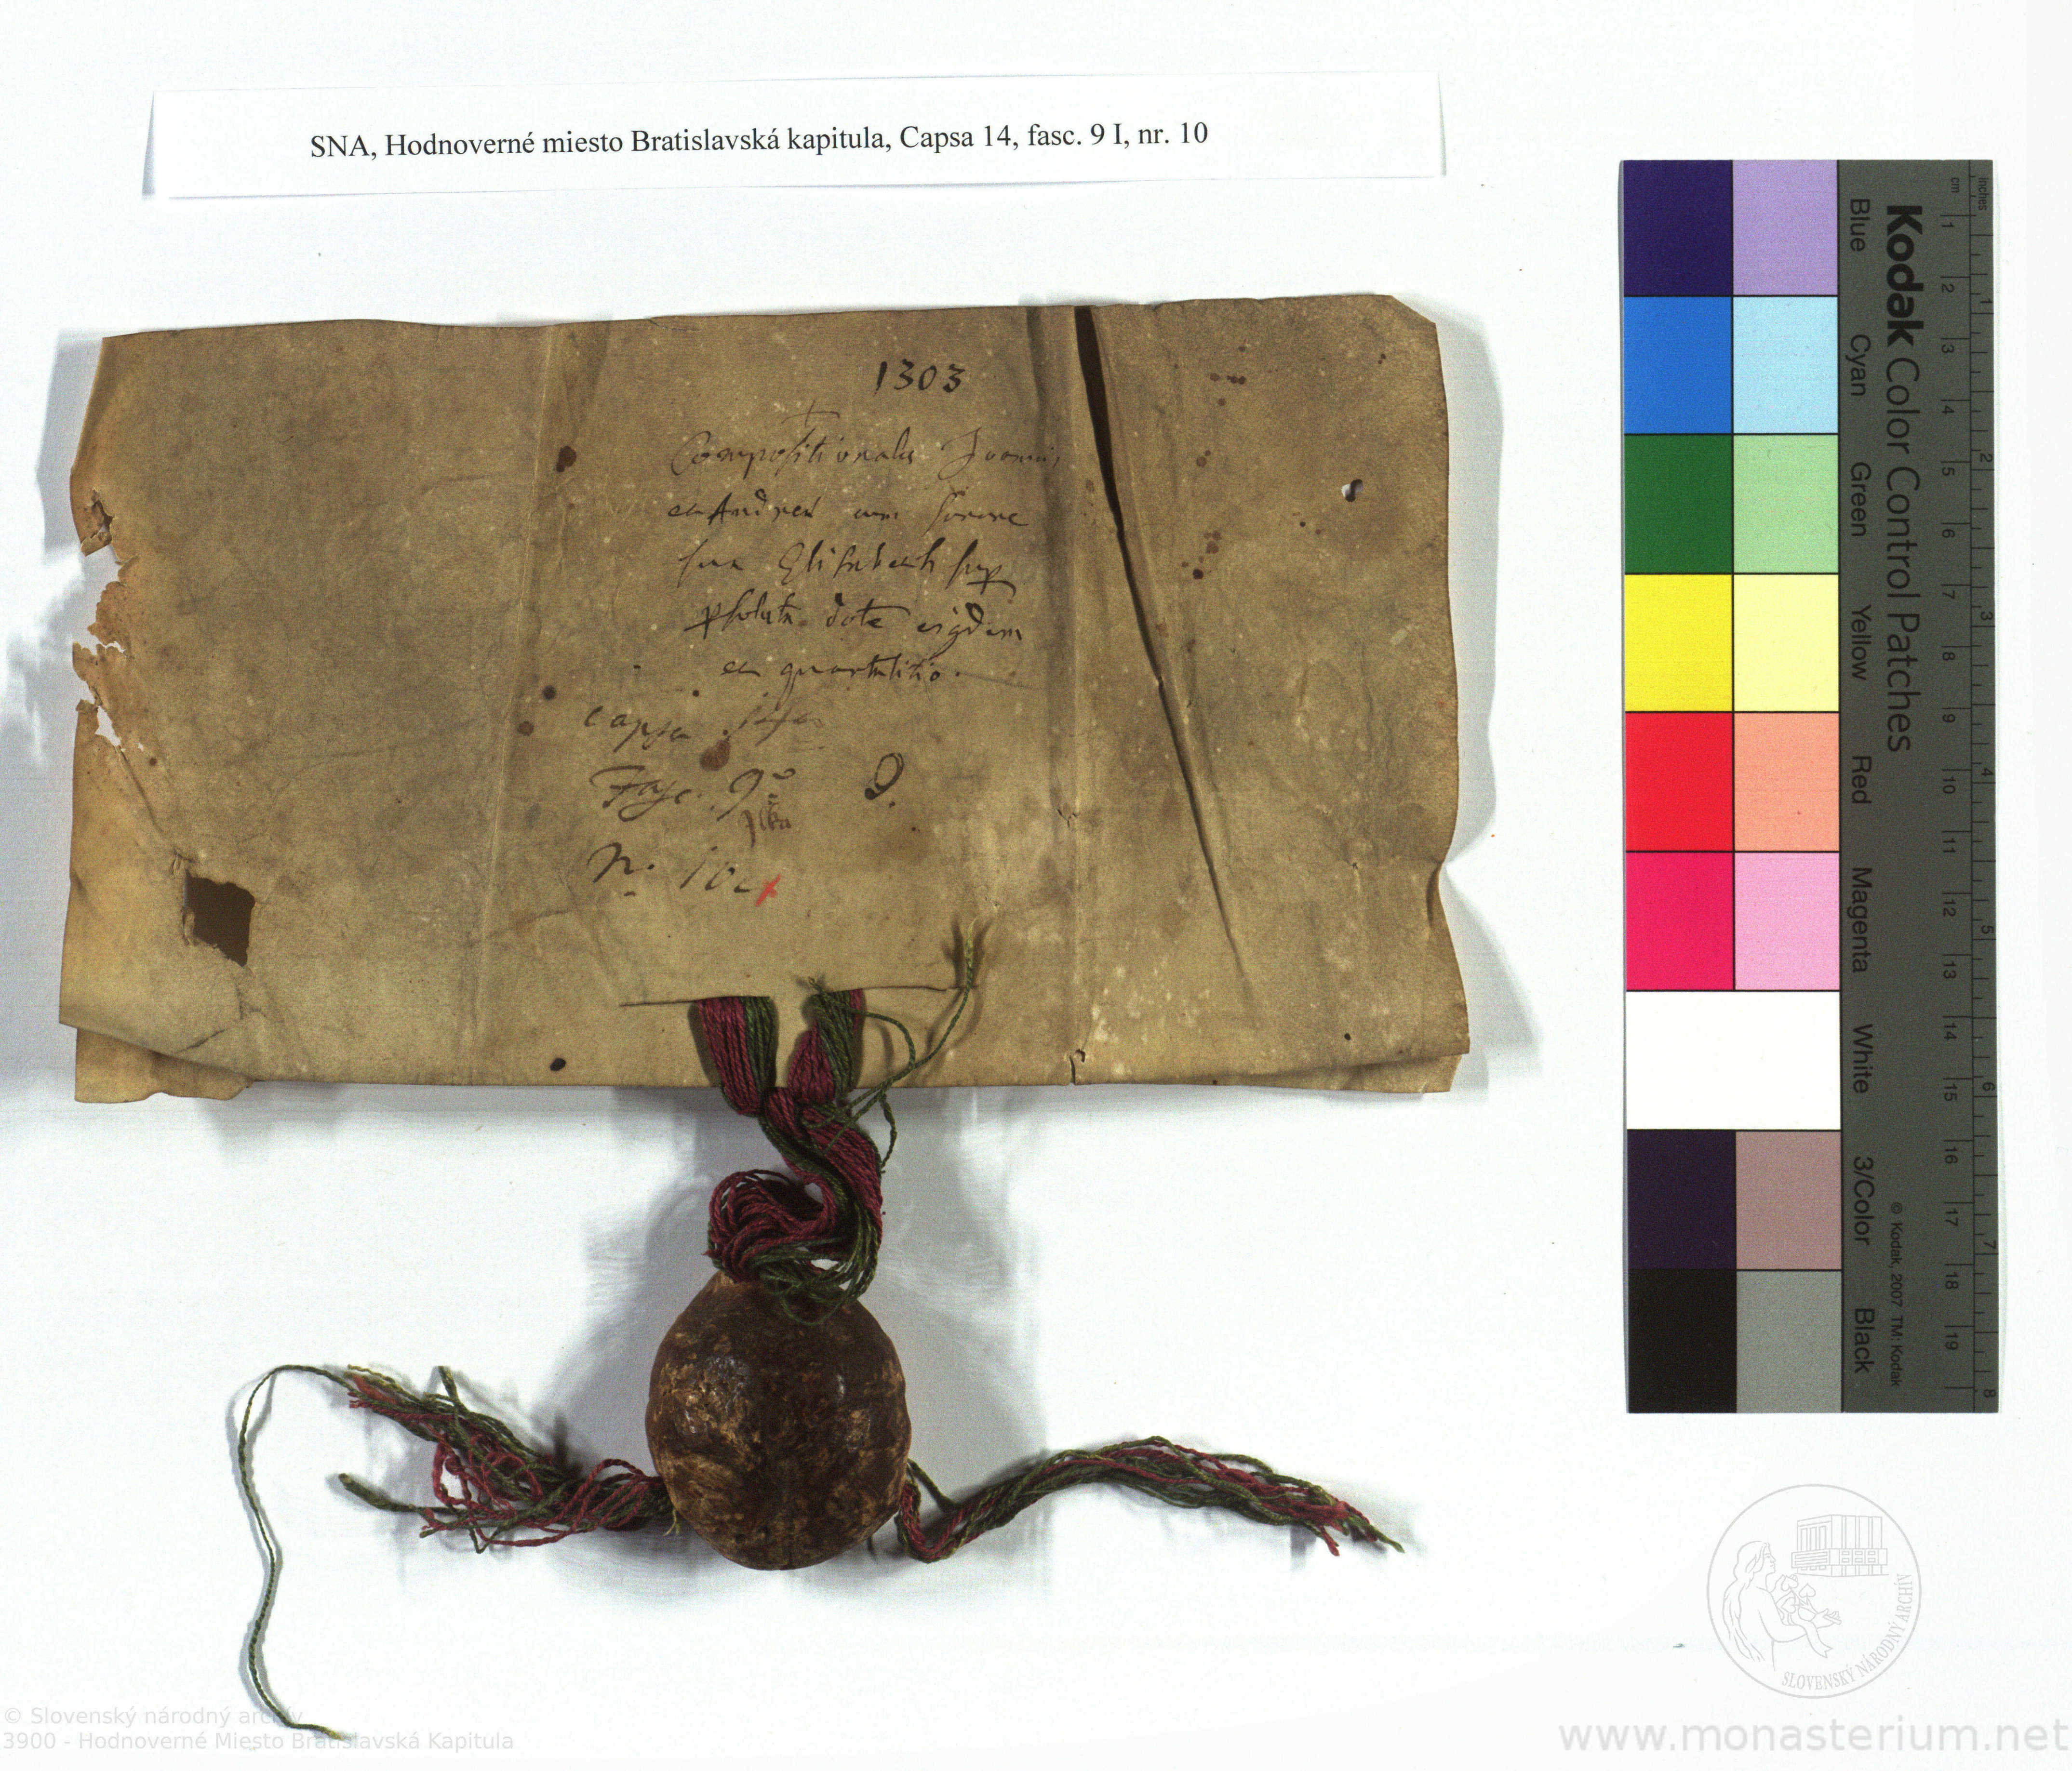 SNA, Hodnoverné miesto Bratislavská kapitula, Capsa 14, fasc. 9 I, nr. 10
1303
Compositionales Joannis
et Andreæ cum sorore
sua Elisabeth sup
psoluta dote eiqdem
et quartalitio.
Capsa 14a
Fasc. 9o 9.
N. 10
Kodak Color Control Patches
Blue Cyan Green Yellow Red Magenta White 3/Color Black
© Kodak, 2007 TM: Kodak
cm 1 2 3 4 5 6 7 8 9 10 11 12 13 14 15 16 17 18 19
inches 1 2 3 4 5 6 7 8
SLOVENSKÝ NÁRODNÝ ARCHÍV
© Slovenský národný archív
3900 - Hodnoverné Miesto Bratislavská Kapitula
www.monasterium.net